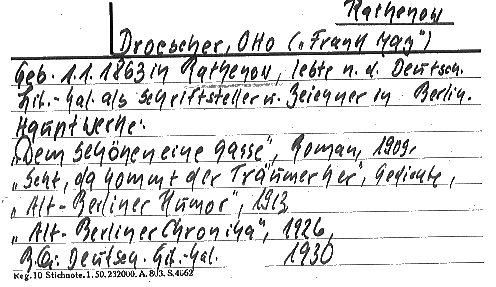 Rathenow
Droescher, Otto („Frank May")
Geb. 1.1.1863 in Rathenow, lebte n. d. Deutsch.
Lit.-Kal. als Schriftsteller u. Zeichner in Berlin.
Hauptwerke:
„Dem Schönen eine Gasse", Roman, 1909,
„Seht, da kommt der Träumer her", Gedichte,
„Alt-Berliner Humor", 1913
„Alt-Berliner Chronika", 1926,
B.Qu: Deutsch. Lit.-Kal. 1930
Reg. 10 Stichnote. 1. 50. 232000. A. 803. S. 4662